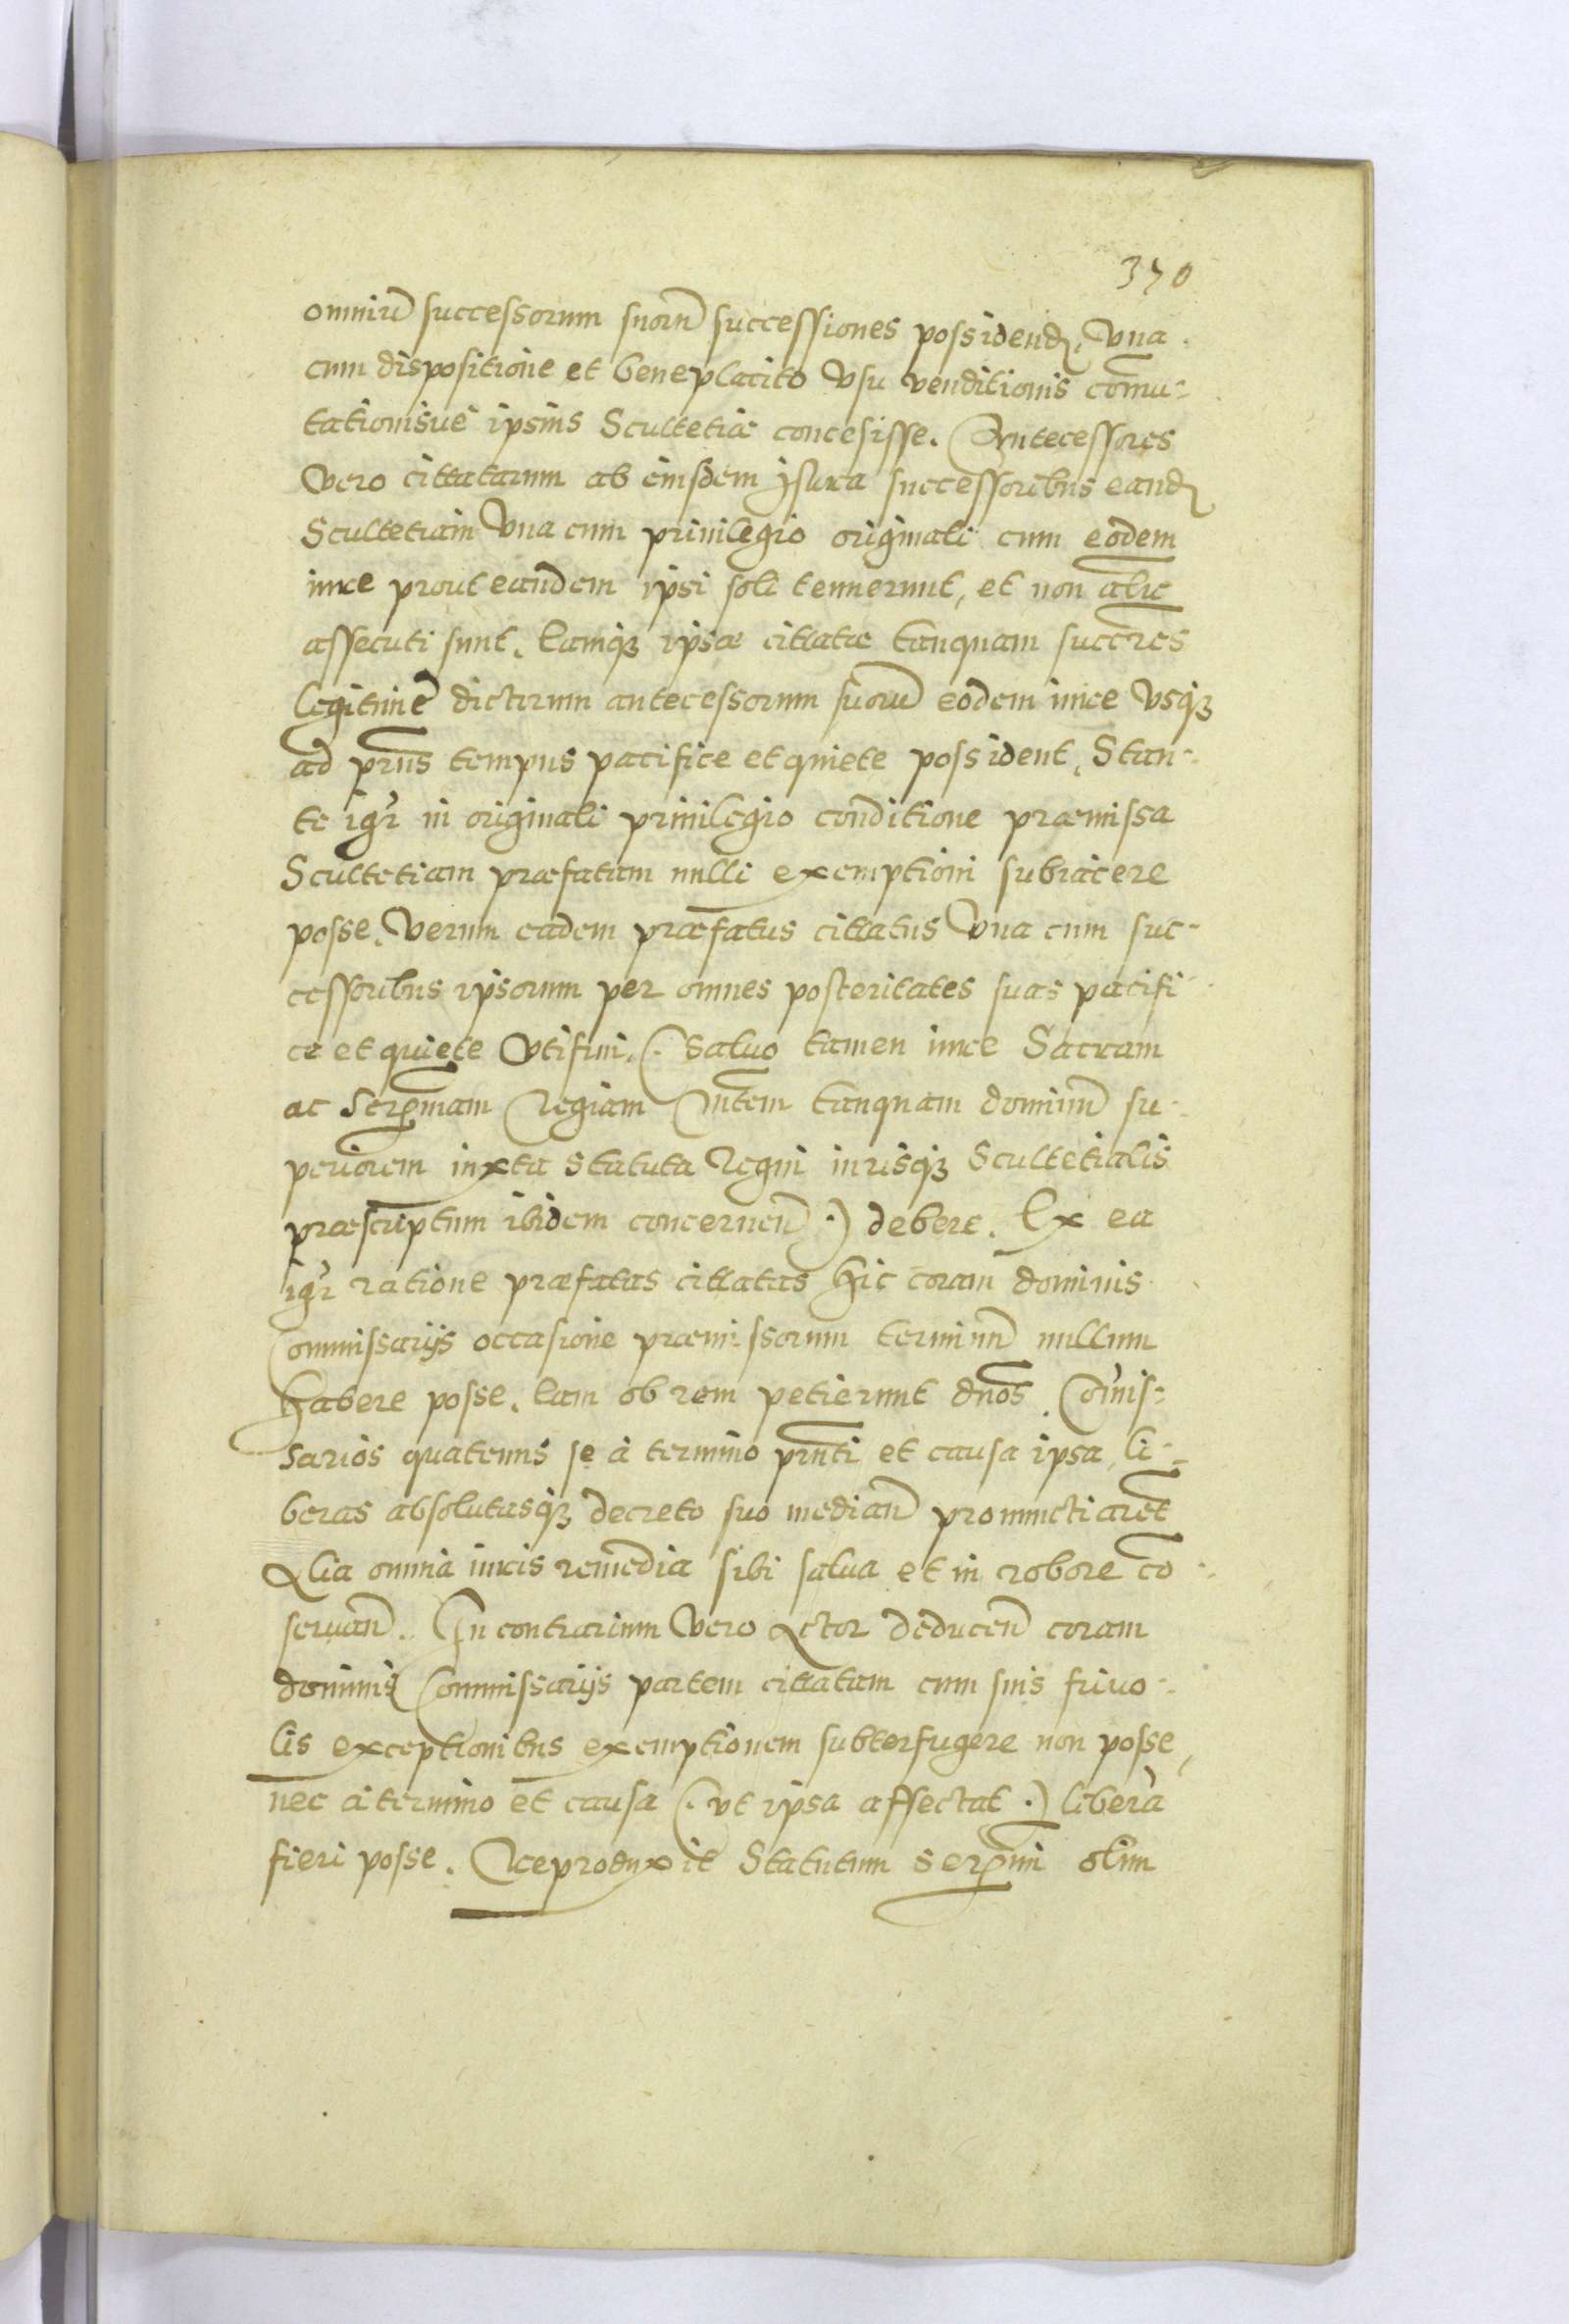 370
omniū successorum suorū successiones possidend. Vna
cum dispositione et beneplacito Vsu venditionis com̄u-
tationisue ipsius Scultetiæ concesisse. Antecessores
Vero cittatarum ab eiusdem successoribus eand
Scultetiam Vna cum priuilegio originali cum eodem
iure prout eandem ipsi soli tenuerunt, et non alie
assecuti sunt. Eamq3 ipsæ cittatæ tanquam succres
legitime dictorum antecessorum suorū eodem iure Vsq3
ad pn̄s tempus pacifice et quiete possident. Stan-
te igr in originali priuilegio conditione præmissa
Scultetiam præfatam nulli exemptioni subiacere
posse. Verum eadem præfatus cittatus Vna cum suc-
cessoribus ipsorum per omnes posteritates suas pacifi-
ce et quiete Vti frui. (. Saluo tamen iure Sacram
ac Serm̄am Regiam Mtem tanquam dominū su-
periorem iuxta Statuta Regni iurisq3 Scultetialis
præscriptum ibidem concernen̄ .) debere. Ex ea
igr ratione præfatas cittatas hic coram dominis
Commissarijs occasione præmissorum terminū nullum
habere posse. Eam ob rem petierunt dnos Com̄is-
sarios quatenus se à termino pn̄ti et causa ipsa li-
beras absolutasq3 decreto suo median̄ pronunctiarēt
Alia omnia iuris remedia sibi salua et in robore cō-
seruan̄. In contrarium Vero Actor deducen̄ coram
dominis Commissarijs partem cittatam cum suis friuo-
lis exceptionibus exemptionem subterfugere non posse,
nec à termino et causa (. vt ipsa affectat .) libera
fieri posse. Reproduxit Statutum Serm̄i olim